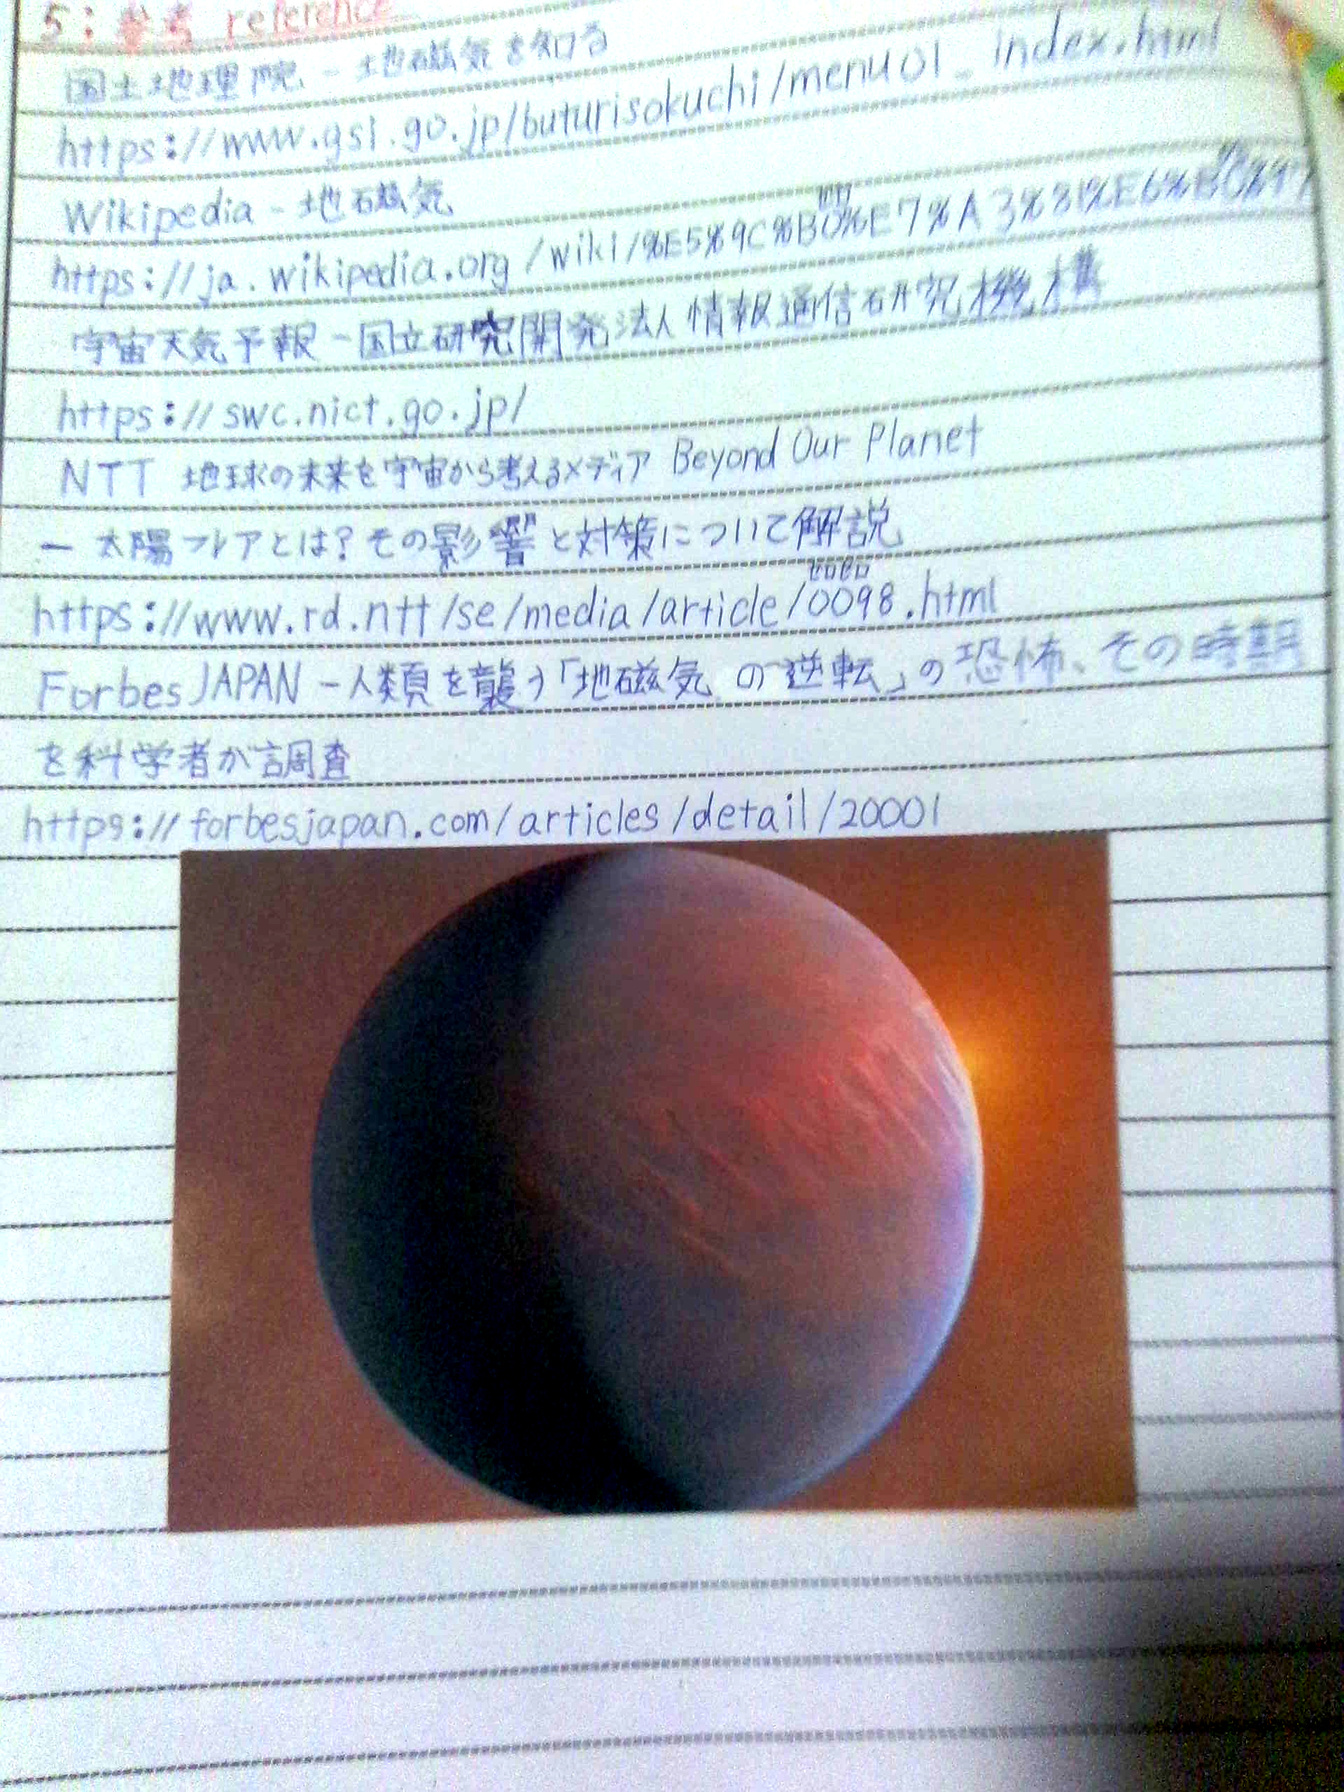 5: 参考 reference
国土地理院 - 地磁気を知る
https://www.gsi.go.jp/buturisokuchi/menu01_index.html
Wikipedia - 地磁気
https://ja.wikipedia.org/wiki/%E5%9C%B0%E7%A3%81%E6%B0%97
宇宙天気予報 - 国立研究開発法人情報通信研究機構
https://swc.nict.go.jp/
NTT 地球の未来を宇宙から考えるメディア Beyond Our Planet
- 太陽フレアとは?その影響と対策について解説
ゼロゼロ
https://www.rd.ntt/se/media/article/0098.html
Forbes JAPAN - 人類を襲う「地磁気の逆転」の恐怖、その時期
を科学者が調査
https://forbesjapan.com/articles/detail/20001